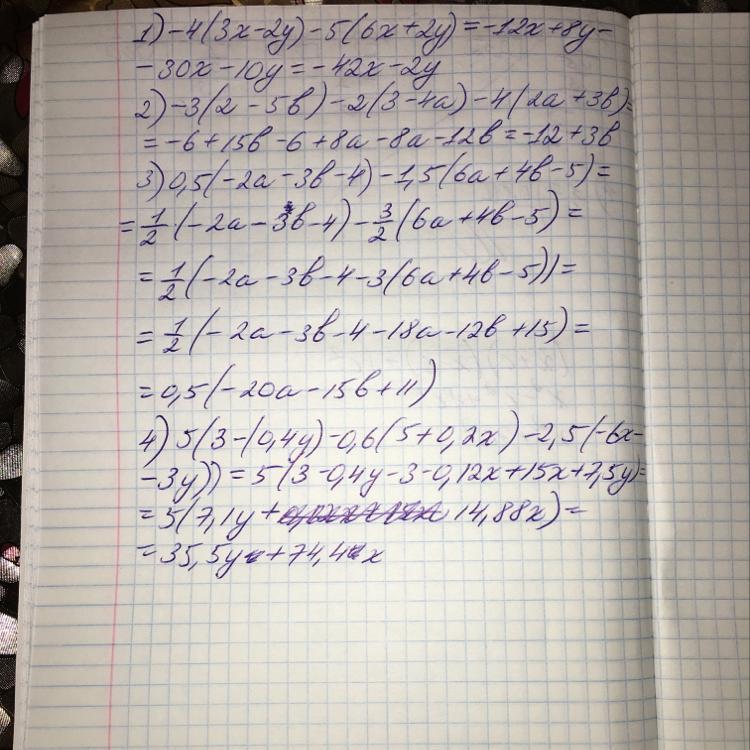 1) -4(3x-2y)-5(6x+2y)=-12x+8y-
-30x-10y=-42x-2y
2) -3(2-5b)-2(3-4a)-4(2a+3b)=
=-6+15b-6+8a-8a-12b=-12+3b
3) 0,5(-2a-3b-4)-1,5(6a+4b-5)=
=1/2(-2a-3b-4)-3/2(6a+4b-5)=
=1/2(-2a-3b-4-3(6a+4b-5))=
=1/2(-2a-3b-4-18a-12b+15)=
=0,5(-20a-15b+11)
4) 5(3-(0,4y)-0,6(5+0,2x)-2,5(-6x-
-3y))=5(3-0,4y-3-0,12x+15x+7,5y)=
=5(7,1y+14,88x)=
=35,5y+74,4x